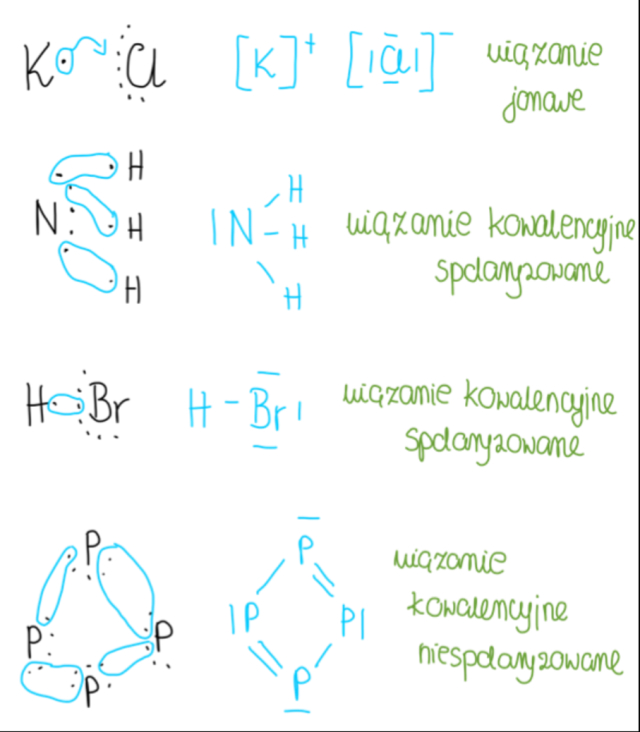 K Cl [K]⁺ [|Cl|]⁻ wiązanie
jonowe
H
N: H
H
H
|N - H
H
wiązanie kowalencyjne
spolaryzowane
H Br H - Br| wiązanie kowalencyjne
spolaryzowane
P
P P
P
P
|P P|
P
wiązanie
kowalencyjne
niespolaryzowane